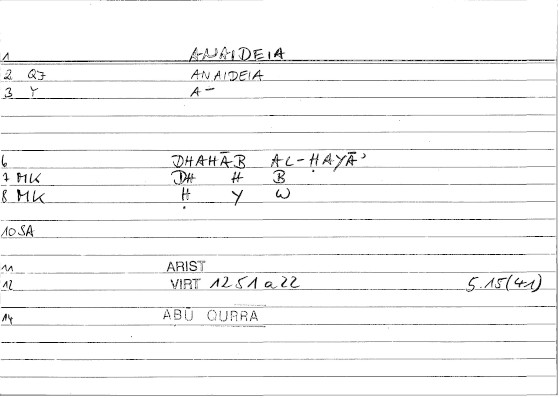 1 ANAIDEIA
2 QJ ANAIDEIA
3 Y A–
6 DHAHĀB AL-ḤAYĀʾ
7 MK DH H B
8 MK Ḥ Y W
10 SA
11 ARIST
12 VIRT 1251a22 5.15(41)
14 ABŪ QURRA